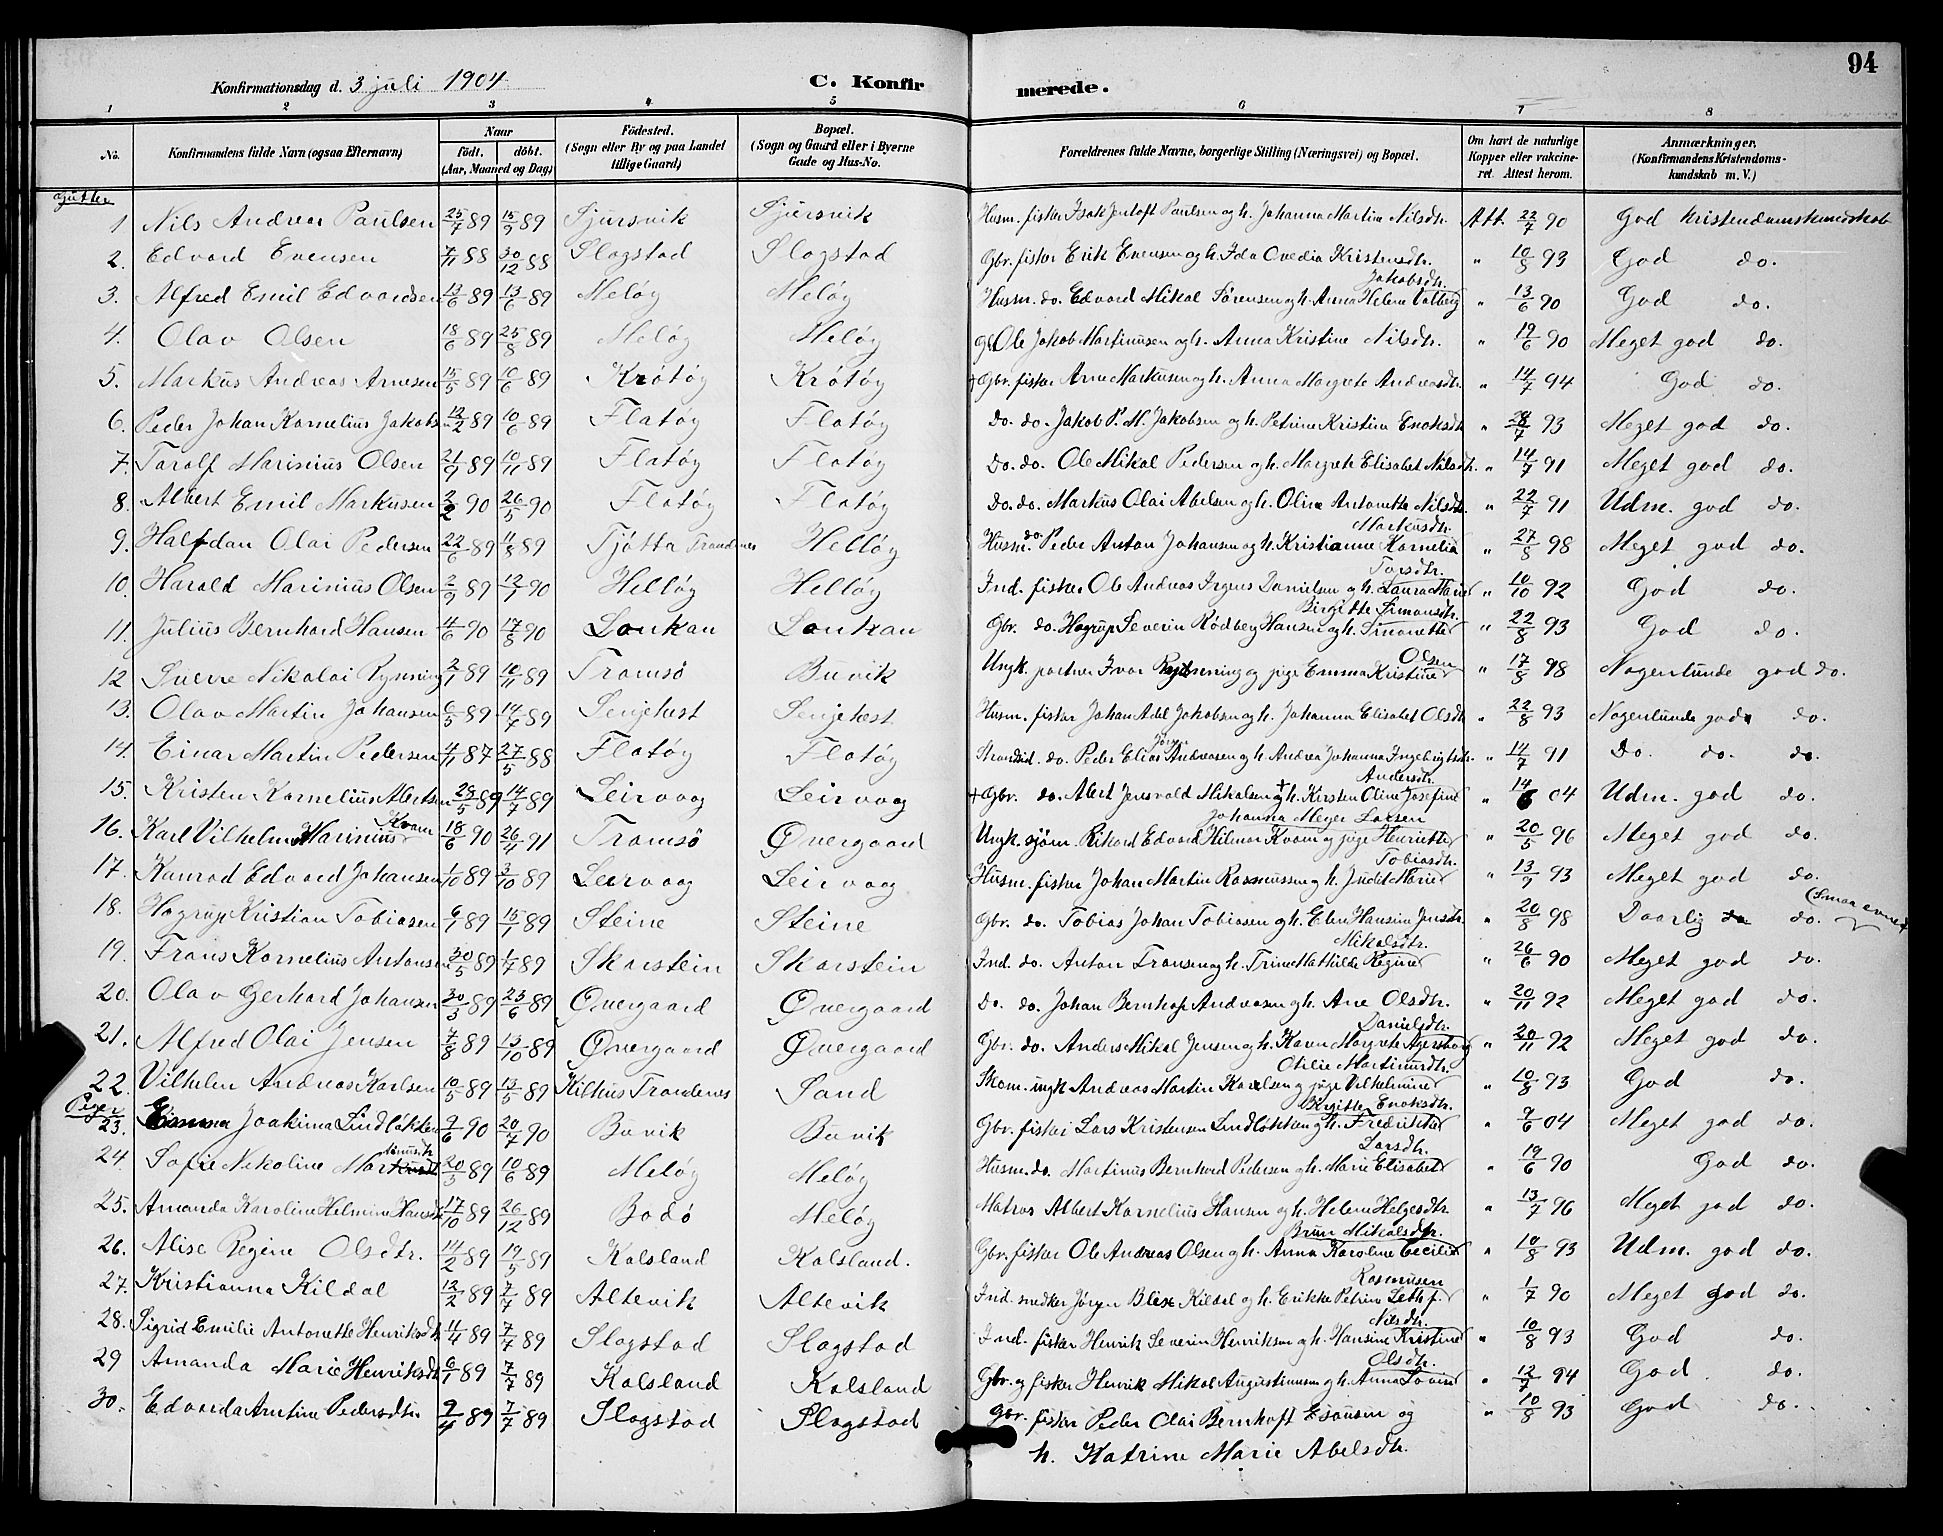 94
Konfirmationsdag d. 3 juli 1904
C. Konfirmerede.
1 2 3 4 5 6 7 8
No. Konfirmandens fulde Navn (ogsaa Efternavn) Naar født. døbt. (Aar, Maaned og Dag) Fødested. (Sogn eller By og paa Landet tillige Gaard) Bopæl. (Sogn og Gaard eller i Byerne Gade og Hus-No. Forældrenes fulde Navne, borgerlige Stilling (Næringsvei) og Bopæl. Om havt de naturlige Kopper eller vakcineret. Attest herom. Anmærkninger. (Konfirmandens Kristendomskundskab m. V.)
Gutter
1 Nils Andreas Paulsen 25/7 89 15/9 89 Sjursvik Sjursvik Husm. fisker Isak Jentoft Paulsen og h. Johanna Martina Nilsdtr. Att. 22/7 90 God Kristendomskundskab
2. Edvard Evensen 7/11 88 30/12 88 Slagstad Slagstad Gbr. fisker Erik Evensen og h. Ida Ovedia Kristensdtr. " 10/8 93 God do.
3. Alfred Emil Edvardsen 13/6 89 13/6 89 Meløy Meløy Husm. do. Edvard Mikal Sørensen og h. Anna Helene Valberg Jakobsdtr. " 13/6 90 God do.
4. Olav Olsen 18/6 89 25/8 89 Meløy Meløy Ole Jakob Martinusen og h. Anna Kristine Nilsdtr. " 19/6 90 Meget god do.
5. Markus Andreas Arnesen 15/5 89 10/6 89 Krøtøy Krøtøy + Gbr. fisker Arne Markusen og h. Anna Margrete Andreasdtr. " 14/7 94 God do.
6. Peder Johan Kornelius Jakobsen 12/2 89 10/6 89 Flatøy Flatøy Do. do. Jakob P. M. Jakobsen og h. Petrine Kristine Enoksdtr " 93 Meget god do.
7. Tarolf Marinius Olsen 21/9 89 10/11 89 Flatøy Flatøy Do. do. Ole Mikal Pedersen og h. Margrete Elisabet Nilsdtr. " 14/7 91 Meget god do.
8. Albert Emil Markusen 2/2 90 26/5 90 Flatøy Flatøy Do. do. Markus Olai Abelsen og h. Oline Antonette Nilsdtr. " 22/7 91 Udm. god do.
9. Halfdan Olai Pedersen 22/6 89 11/8 89 Tjøtta Trondenes Helløy Husm. do. Peder Anton Johansen og h. Kristianne Kornelia Markusdtr. " 27/8 98 Meget god do.
10. Harald Marinius Olsen 2/9 89 12/1 90 Helløy Helløy Ind. fisker Ole Andreas Irgens Danielsen og h. Laura Marie Torsdtr. " 10/10 92 God do.
11. Julius Bernhard Hansen 4/6 90 17/8 90 Lonkan Lonkan Gbr. do. Hagrup Severin Rødberg Hansen og h. Simonette Birgitte Simonsdtr. " 22/8 93 God do.
12 Sverre Nikolai Rynning 2/1 89 10/11 89 Tromsø Buvik Ungk. partner Ivar Rynning og pige Emma Kristine Olsen " 17/8 98 Nogenlunde god do.
13. Olav Martin Johansen 6/5 89 14/7 89 Senjehest Senjehest Husm. fisker Johan Adel Jakobsen og h. Johanna Elisabet Olsdtr " 22/8 93 Nogenlunde god do.
14. Einar Martin Pedersen 4/11 87 27/5 88 Flatøy Flatøy Strandsid. do. Peder Elias Andreasen og h. Andrea Johanna Ingebrigtsdtr. " 14/7 91 Do. do. do.
15. Kristen Kornelius Abertsen 28/5 89 14/7 89 Leirvaag Leirvaag + Gbr. do. Abert Jensvold Mikalsen + h. Kirsten Oline Josefine Andersdtr. " 14/6 04 Udm. god do.
16. Karl Vilhelm Marinius Kvam 18/6 90 26/4 91 Tromsø Øvergaard Ungk. sjøm. Rikard Edvard Hilmar Kvam og pige Henriette Johanna Meyer Larsen " 20/5 96 Meget god do.
17. Konrad Edvard Johansen 1/10 89 3/10 89 Leirvaag Leirvaag Husm. fisker Johan Martin Rasmussen og h. Judit Marie Tobiasdtr. " 13/9 93 Meget god do.
18. Hagrup Kristian Tobiasen 6/1 89 15/1 89 Steine Steine Gbr. do. Tobias Johan Tobiasen og h. Elen Hansine Jensdtr. " 20/8 98 Daarlig do. (smaa evner)
19. Frans Kornelius Antonsen 30/5 89 1/7 89 Skarstein Skarstein Ind. do. Anton Fransen og h. Trine Mathilde Regine Mikalsdtr. " 26/6 90 Meget god do.
20. Olav Gerhard Johansen 30/3 89 23/6 89 Øvergaard Øvergaard Do. do. Johan Bernhof Andreasen og h. Ane Olsdtr. " 20/11 92 Meget god do.
21. Alfred Olai Jensen 7/8 89 13/10 89 Øvergaard Øvergaard Gbr. do. Anders Mikal Jensen og h. Karen Margrete Agersborg Danielsdtr. " 20/11 92 Meget god do.
22. Vilhelm Andreas Karlsen 10/5 89 13/5 89 Kilhus Trondenes Sand Skom. ungk Andreas Martin Karlsen og pige Vilhelmine Otilie Martinusdtr. " 10/8 93 God do.
Piger
23. Emma Joakima Lindløkken 7/6 90 20/7 90 Buvik Buvik Gbr. fisker Lars Kristensen Lindløkken og h. Fredrikke Birgitte Enoksdtr. " 7/6 04 Meget god do.
24. Sofie Nikoline Martinusdtr 20/5 89 10/6 89 Meløy Meløy Husm. do. Martinus Bernhard Pedersen og h. Marie Elisabet Larsdtr. " 19/6 90 God do.
25. Amanda Karoline Helmine Hansdtr 17/10 89 26/12 89 Bodø Meløy Matros Albert Kornelius Hansen og h. Helene Helgesdtr " 13/7 96 Meget god do.
26. Alise Regine Olsdtr. 14/2 89 19/5 89 Kalsland Kalsland. Gbr. fisker Ole Andreas Olsen og h. Anna Karoline Cecilie Brun Mikalsdtr. " 10/8 93 Udm. god do.
27. Kristianna Kildal 12/2 89 7/7 89 Altevik Altevik Ind. snedker Jørgen Blix Kildal og h. Erikke Petrine Leth f. Rasmusen " 1/7 90 Meget god do.
28. Sigrid Emilie Antonette Henriksdtr 11/4 89 7/7 89 Slagstad Slagstad Ind. fisker Henrik Severin Henriksen og h. Hansine Kristine Nilsdtr. " 10/8 93 God do.
29 Amanda Marie Henriksdtr 6/1 89 7/7 89 Kalsland Kalsland Gbr. og fisker Henrik Mikal Augustinusen og h. Anna Lovise Olsdtr. " 12/7 94 God do.
30. Edvarda Arntine Pedersdtr 9/4 89 7/7 89 Slagstad Slagstad Gbr. fisker Peder Olai Bernhoft Esausen og " 10/8 93 God do.
h. Katrine Marie Abelsdtr.